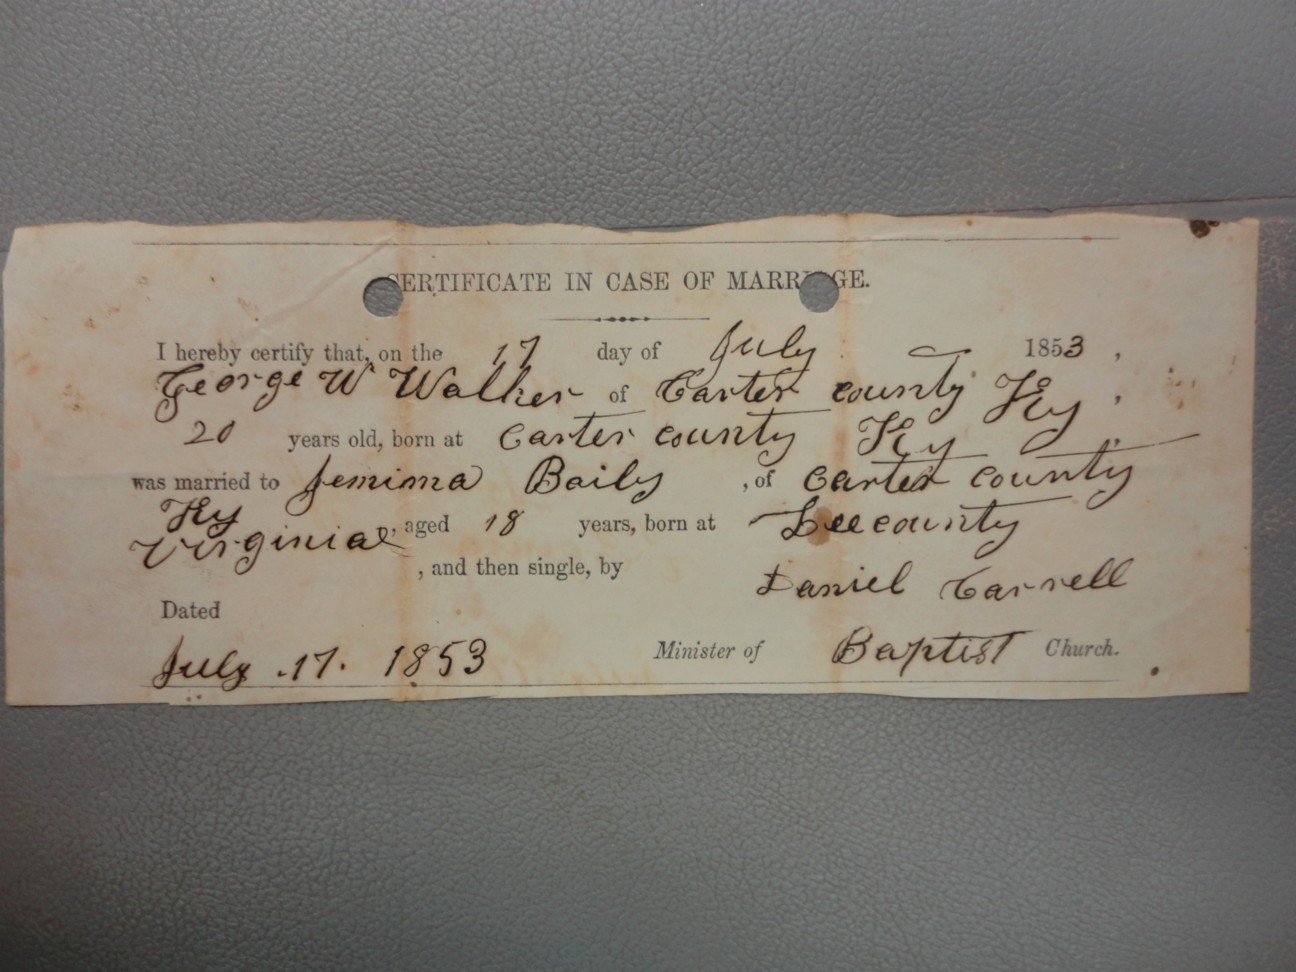 CERTIFICATE IN CASE OF MARRIAGE.
I hereby certify that, on the 17 day of July 1853,
George W Walker of Carter county Ky,
20 years old, born at Carter county Ky,
was married to Jemima Baily, of Carter county
Ky, aged 18 years, born at Lee county
Virginia, and then single, by
Daniel Carrell
Dated
July 17. 1853 Minister of Baptist Church.